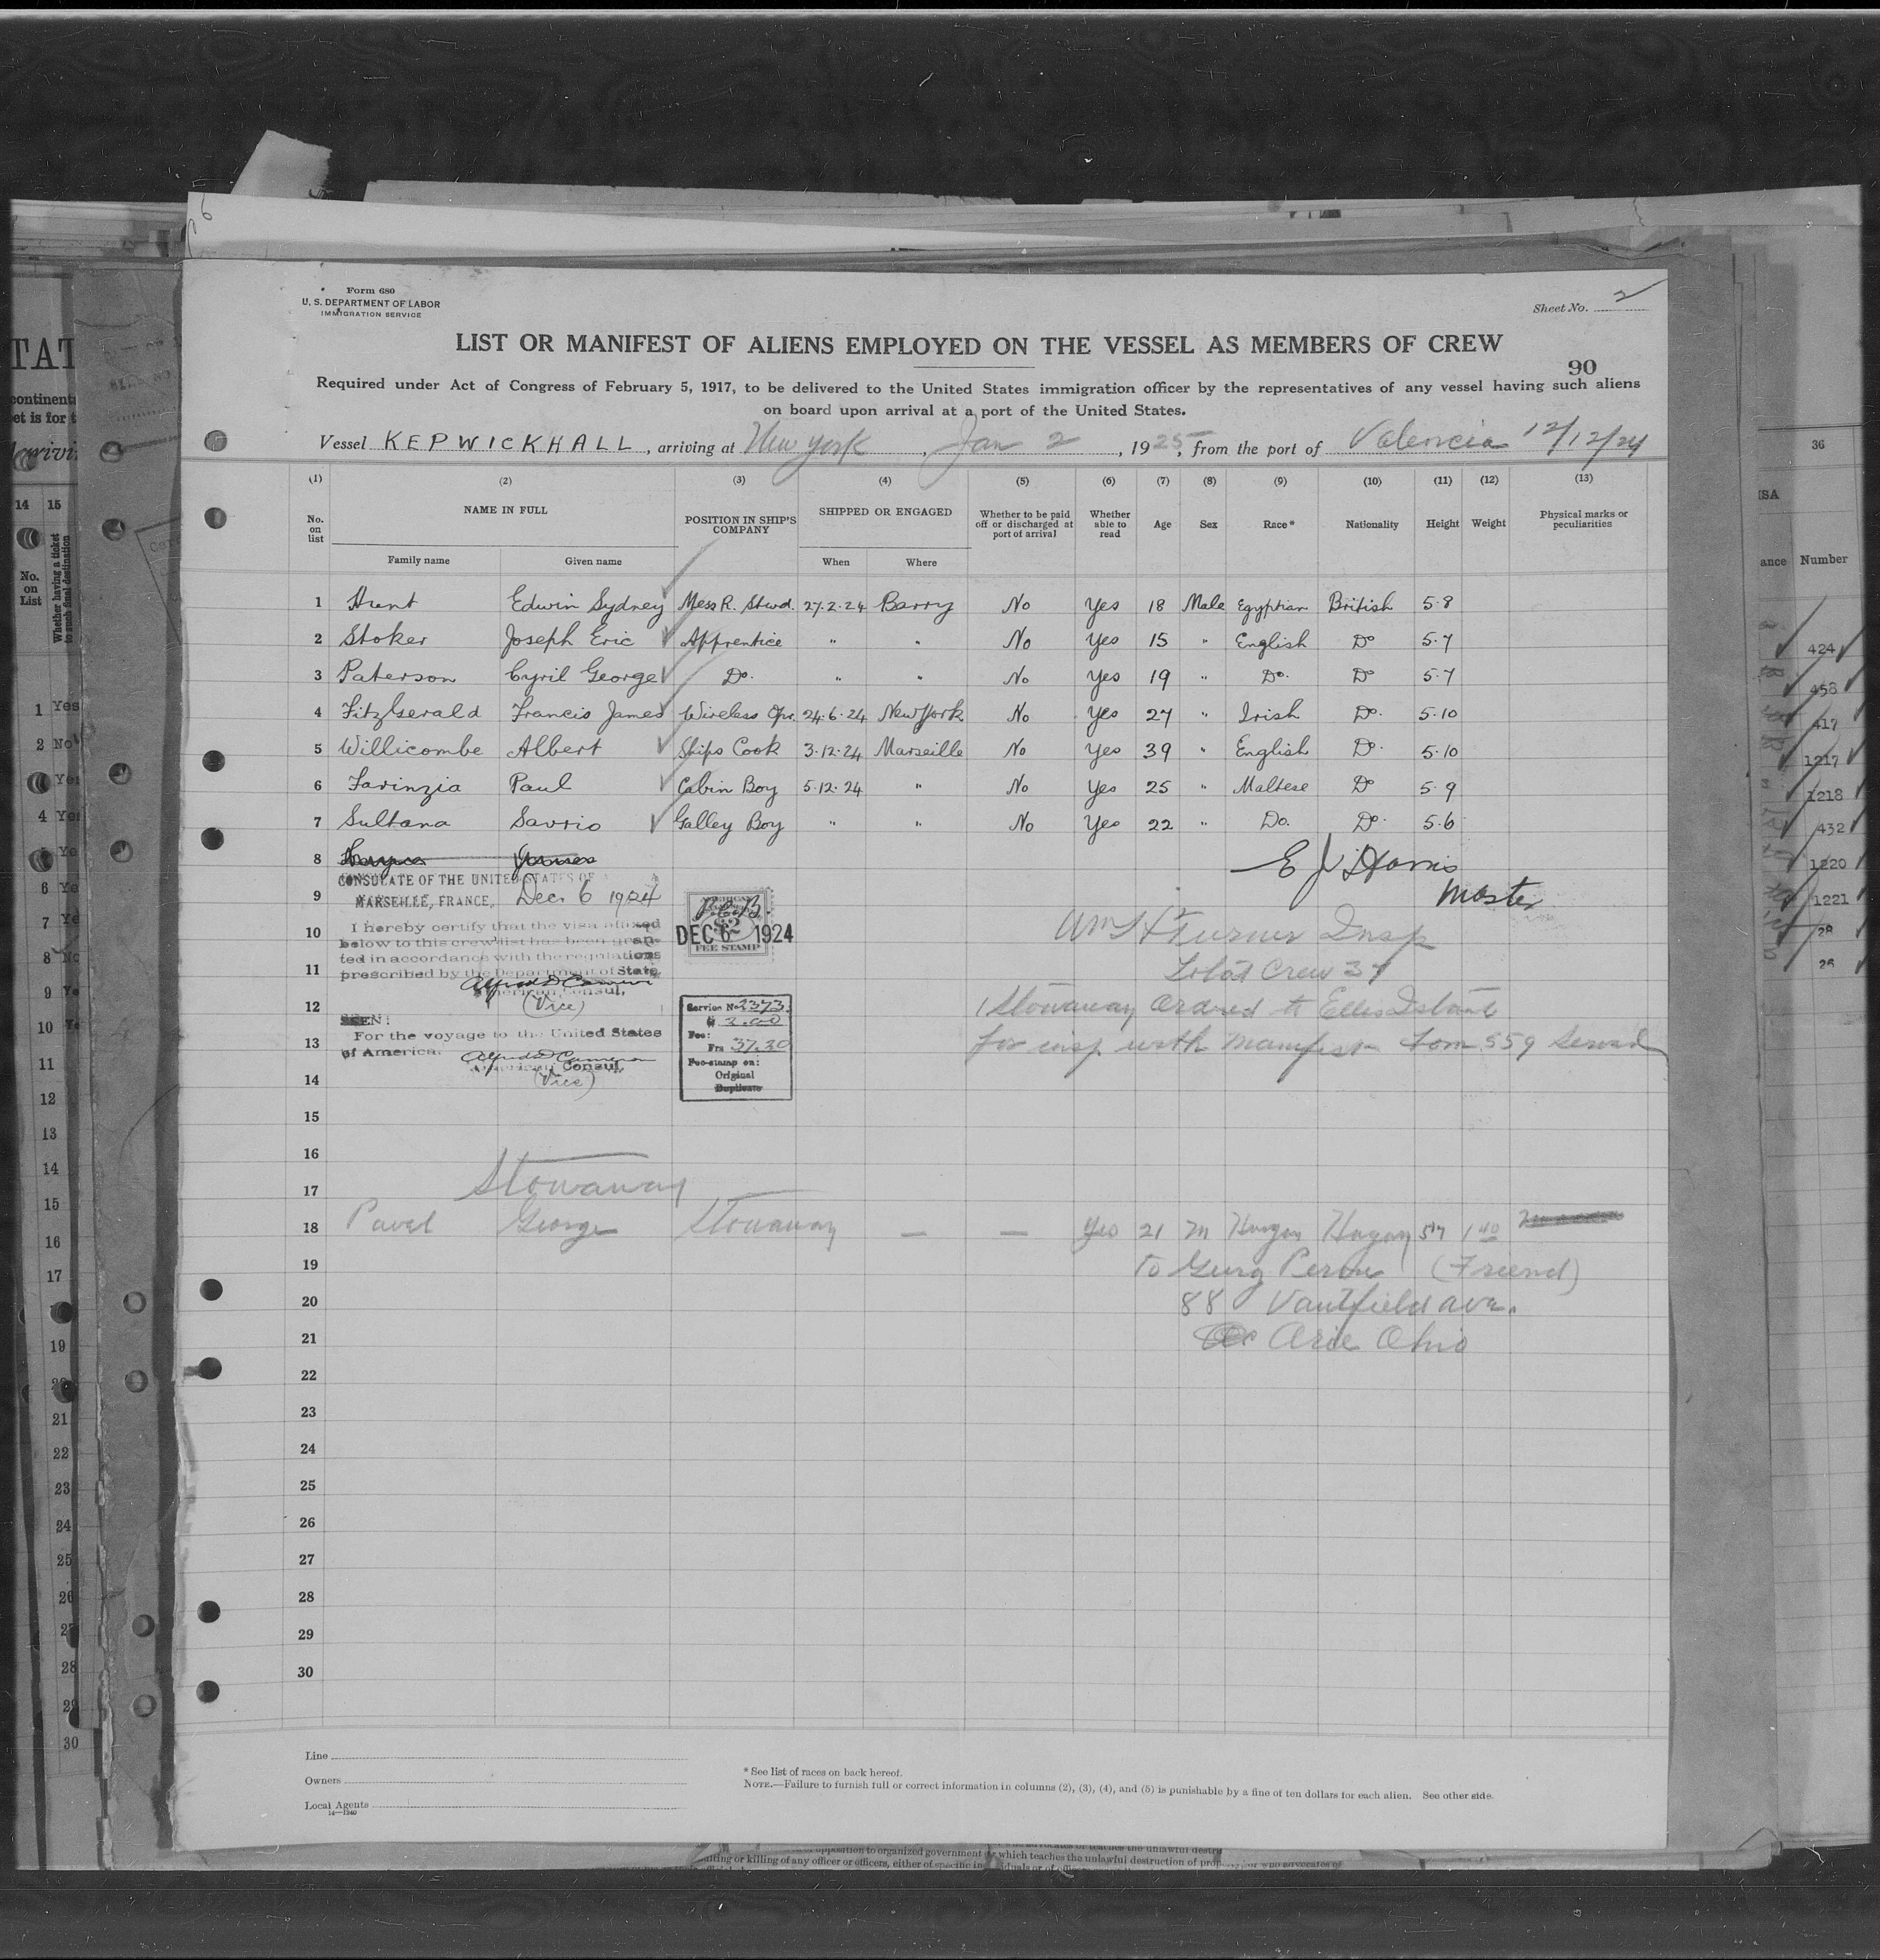 Form 680
U. S. DEPARTMENT OF LABOR
IMMIGRATION SERVICE
Sheet No. 2
LIST OR MANIFEST OF ALIENS EMPLOYED ON THE VESSEL AS MEMBERS OF CREW
90
Required under Act of Congress of February 5, 1917, to be delivered to the United States immigration officer by the representatives of any vessel having such aliens
on board upon arrival at a port of the United States.
Vessel KEPWICKHALL, arriving at New York, Jan 2, 1925, from the port of Valencia 12/12/24
(1) (2) (3) (4) (5) (6) (7) (8) (9) (10) (11) (12) (13)
No. on list NAME IN FULL POSITION IN SHIP'S COMPANY SHIPPED OR ENGAGED Whether to be paid off or discharged at port of arrival Whether able to read Age Sex Race* Nationality Height Weight Physical marks or peculiarities
Family name Given name When Where
1 Hunt Edwin Sydney Mess R. Stwd. 27.2.24 Barry No Yes 18 Male Egyptian British 5.8
2 Stoker Joseph Eric Apprentice " " No Yes 15 " English Do 5.7
3 Paterson Cyril George Do. " " No Yes 19 " Do. Do 5.7
4 FitzGerald Francis James Wireless Opr. 24.6.24 New York No Yes 27 " Irish Do. 5.10
5 Willicombe Albert Ships Cook 3.12.24 Marseille No Yes 39 " English Do. 5.10
6 Farinzia Paul Cabin Boy 5.12.24 " No Yes 25 " Maltese Do 5.9
7 Sultana Savrio Galley Boy " " No Yes 22 " Do. Do. 5.6
8
E J Harris
Master
CONSULATE OF THE UNITED STATES OF
9 MARSEILLE, FRANCE, Dec. 6 1924
$2
DEC 6 1924
FEE STAMP
10 I hereby certify that the visa affixed
below to this crew list has been gran-
ted in accordance with the regulations
11 prescribed by the Department of State
American Consul,
12 (Vice)
SEEN:
For the voyage to the United States
13 of America.
Alfred D Cameron
American Consul,
14 (Vice)
Service No 2373.
$ 2.00
Fee:
Frs 37.20
Fee-stamp on:
Original
Duplicate
Wm H Turner Insp
Total Crew 37
1 Stowaway ordered to Ellis Island
for insp with Manifest Form 559 Served
15
16
17 Stowaway
18 Pavel George Stowaway — — Yes 21 M 5'7 1 40
19 To (Friend)
20 88 Ave.
21 Ohio
22
23
24
25
26
27
28
29
30
Line
Owners
Local Agents
14—1240
* See list of races on back hereof.
NOTE.—Failure to furnish full or correct information in columns (2), (3), (4), and (5) is punishable by a fine of ten dollars for each alien. See other side.